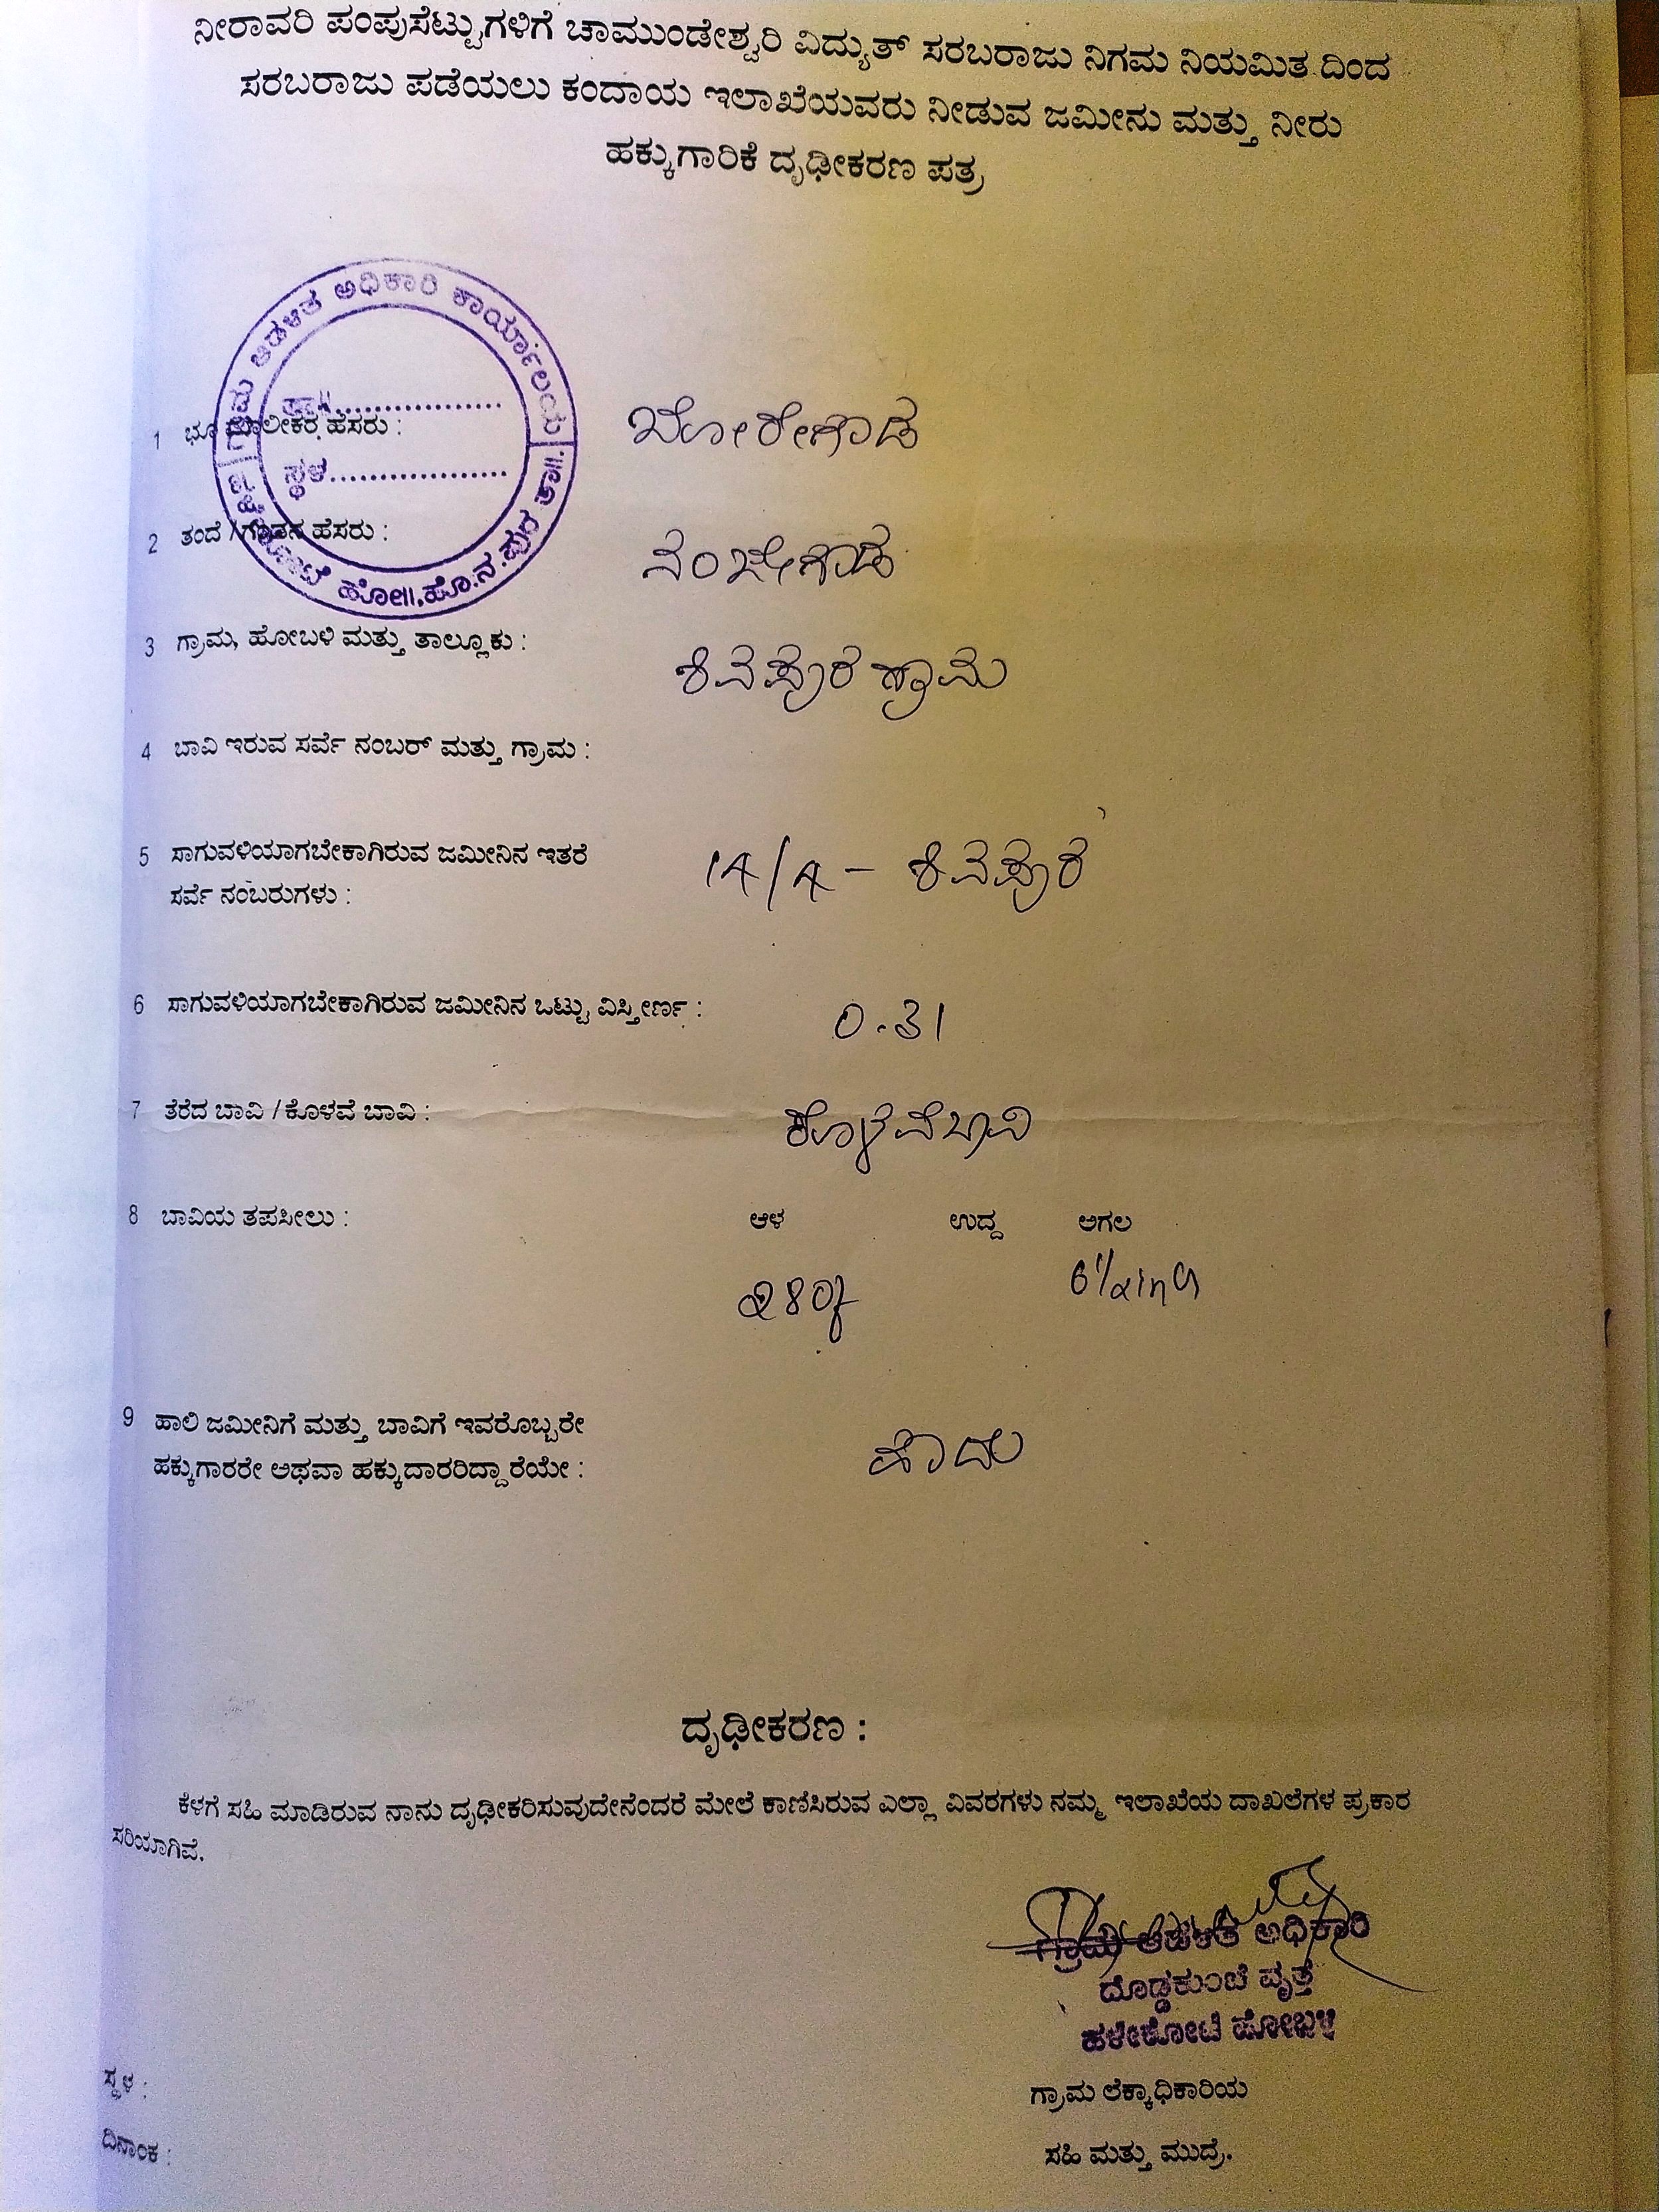 ನೀರಾವರಿ ಪಂಪುಸೆಟ್ಟುಗಳಿಗೆ ಚಾಮುಂಡೇಶ್ವರಿ ವಿದ್ಯುತ್ ಸರಬರಾಜು ನಿಗಮ ನಿಯಮಿತ ದಿಂದ
ಸರಬರಾಜು ಪಡೆಯಲು ಕಂದಾಯ ಇಲಾಖೆಯವರು ನೀಡುವ ಜಮೀನು ಮತ್ತು ನೀರು
ಹಕ್ಕುಗಾರಿಕೆ ದೃಢೀಕರಣ ಪತ್ರ
ಆಡಳಿತ ಅಧಿಕಾರಿ ಕಾರ್ಯಾಲಯ
ಸ್ಥಳ..................
ಹೋ||,ಹೊ.ನ.ಪುರ ತಾ||.
1 ಭೂ ಮಾಲೀಕರ ಹೆಸರು : ಬೋರೇಗೌಡ
2 ತಂದೆ / ಗಂಡನ ಹೆಸರು : ನಂಜೇಗೌಡ
3 ಗ್ರಾಮ, ಹೋಬಳಿ ಮತ್ತು ತಾಲ್ಲೂಕು : ಶಿವಪುರ ಗ್ರಾಮ
4 ಬಾವಿ ಇರುವ ಸರ್ವೆ ನಂಬರ್ ಮತ್ತು ಗ್ರಾಮ :
5 ಸಾಗುವಳಿಯಾಗಬೇಕಾಗಿರುವ ಜಮೀನಿನ ಇತರೆ 14/4 - ಶಿವಪುರ
ಸರ್ವೆ ನಂಬರುಗಳು :
6 ಸಾಗುವಳಿಯಾಗಬೇಕಾಗಿರುವ ಜಮೀನಿನ ಒಟ್ಟು ವಿಸ್ತೀರ್ಣ : 0.31
7 ತೆರೆದ ಬಾವಿ / ಕೊಳವೆ ಬಾವಿ : ಕೊಳವೆಬಾವಿ
8 ಬಾವಿಯ ತಪಸೀಲು : ಆಳ ಉದ್ದ ಅಗಲ
280f 6½
9 ಹಾಲಿ ಜಮೀನಿಗೆ ಮತ್ತು ಬಾವಿಗೆ ಇವರೊಬ್ಬರೇ
ಹಕ್ಕುಗಾರರೇ ಅಥವಾ ಹಕ್ಕುದಾರರಿದ್ದಾರೆಯೇ : ಹೌದು
ದೃಢೀಕರಣ :
ಕೆಳಗೆ ಸಹಿ ಮಾಡಿರುವ ನಾನು ದೃಢೀಕರಿಸುವುದೇನೆಂದರೆ ಮೇಲೆ ಕಾಣಿಸಿರುವ ಎಲ್ಲಾ ವಿವರಗಳು ನಮ್ಮ ಇಲಾಖೆಯ ದಾಖಲೆಗಳ ಪ್ರಕಾರ
ಸರಿಯಾಗಿವೆ.
ಗ್ರಾಮ ಆಡಳಿತ ಅಧಿಕಾರಿ
ದೊಡ್ಡಕುಂಚೆ ವೃತ್ತ
ಹಳೇಕೋಟೆ ಹೋಬಳಿ
ಸ್ಥಳ :
ಗ್ರಾಮ ಲೆಕ್ಕಾಧಿಕಾರಿಯ
ದಿನಾಂಕ :
ಸಹಿ ಮತ್ತು ಮುದ್ರೆ.